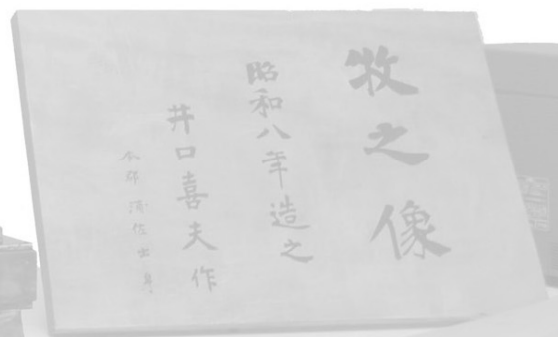 牧之像
昭和八年造之
井口喜夫作